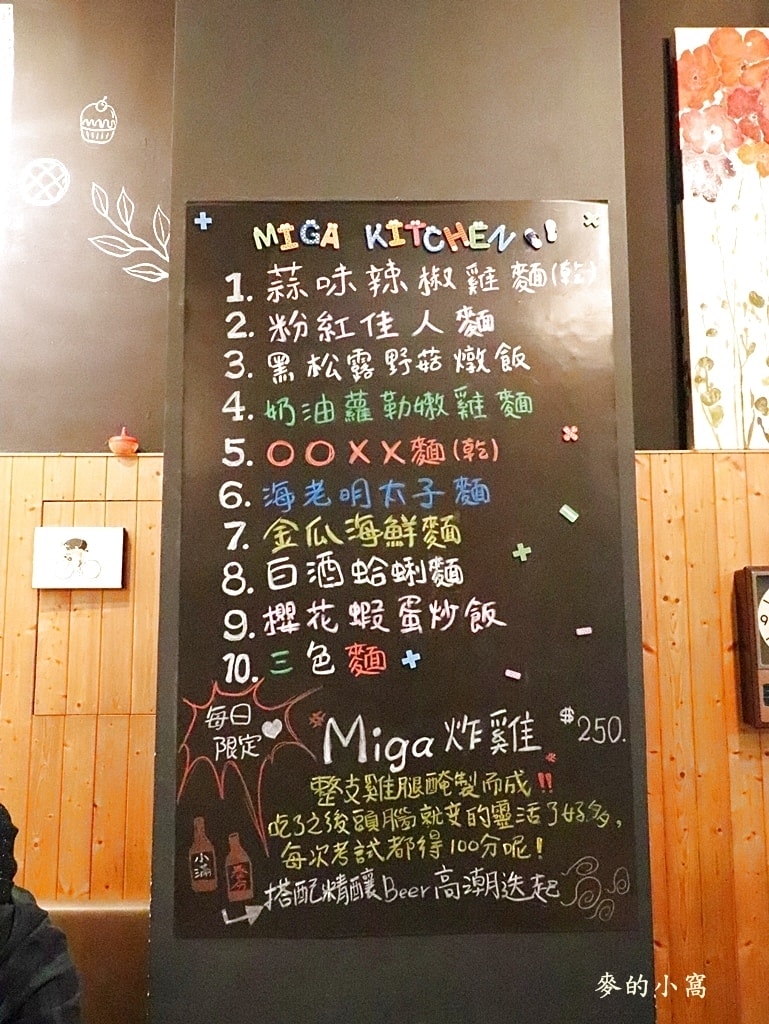 MIGA KITCHEN
1. 蒜味辣椒雞麵(乾)
2. 粉紅佳人麵
3. 黑松露野菇燉飯
4. 奶油蘿勒嫩雞麵
5. ○○XX麵(乾)
6. 海老明太子麵
7. 金瓜海鮮麵
8. 白酒蛤蜊麵
9. 櫻花蝦蛋炒飯
10. 三色麵
每日限定
Miga 炸雞 $250.
整支雞腿醃製而成!!
吃了之後頭腦就變的靈活了好多,
每次考試都得100分呢!
小滿
搭配精釀Beer高潮迭起
9
麥的小窩